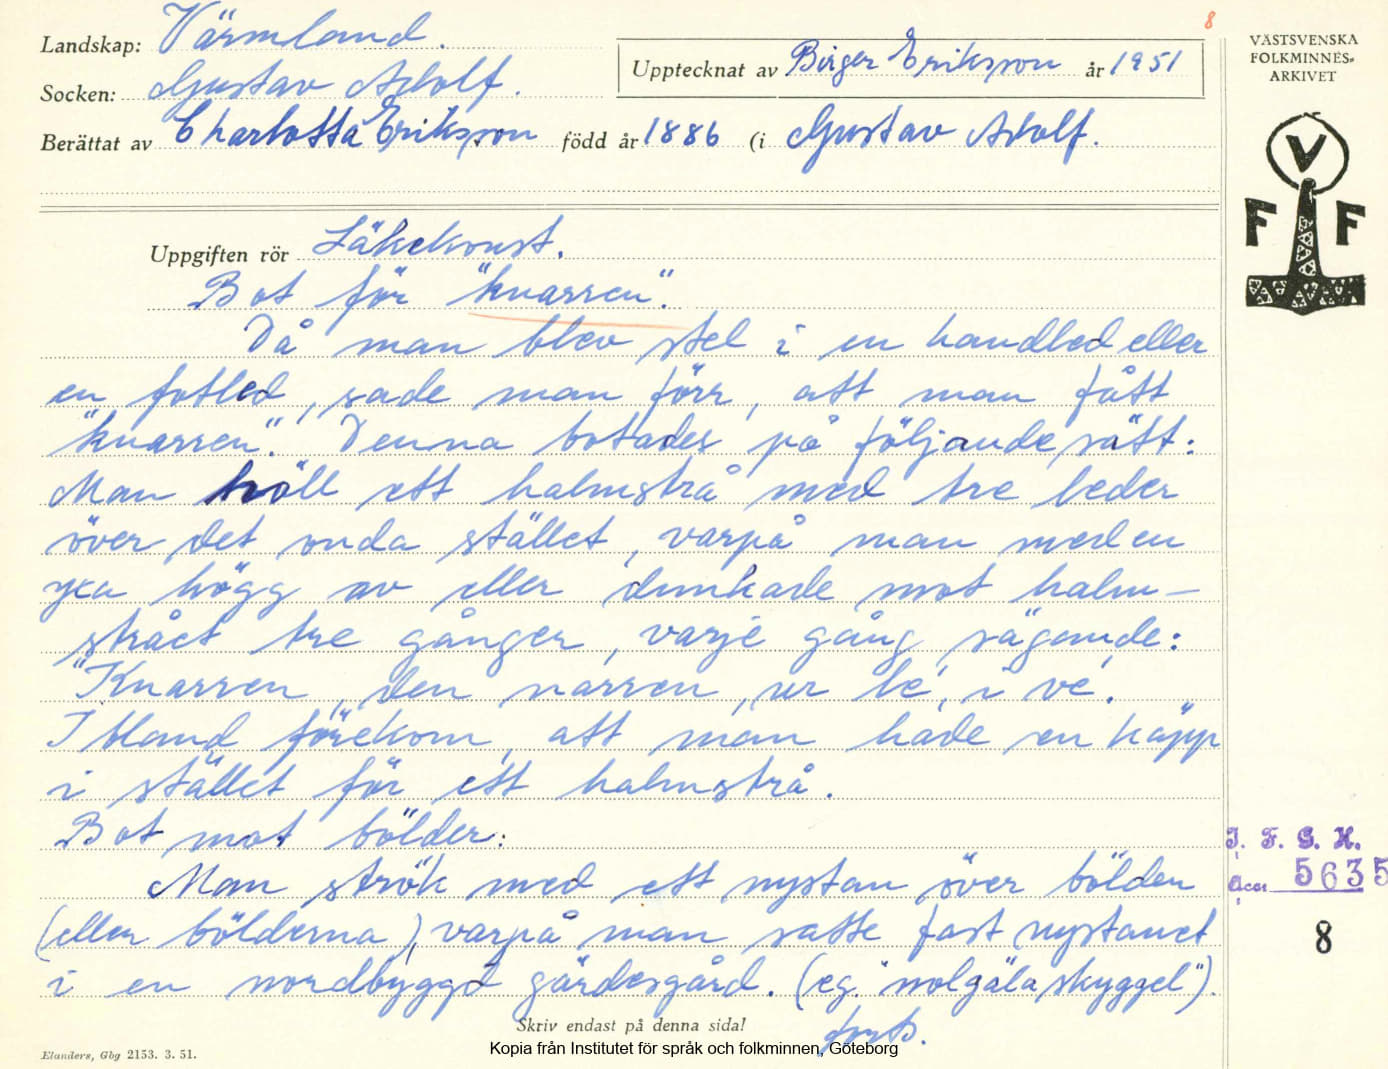 8
Landskap: Värmland.
Socken: Gustav Adolf.
Upptecknat av Birger Eriksson år 1951
Berättat av Charlotta Eriksson född år 1886 (i Gustav Adolf.
VÄSTSVENSKA
FOLKMINNES-
ARKIVET
V
F F
Uppgiften rör Läkekonst.
Bot för "knarren".
Då man blev stel i en handled eller
en fotled, sade man förr, att man fått
"knarren". Denna botades på följande sätt:
Man höll ett halmstrå med tre leder
över det onda stället, varpå man med en
yxa högg av eller dunkade mot halm-
strået tre gånger, varje gång sägande:
"Knarren, den narren, ur le', i ve'.
Ibland förekom, att man hade en käpp
i stället för ett halmstrå.
Bot mot bölder:
Man strök med ett nystan över bölden
(eller bölderna), varpå man satte fast nystanet
i en nordbyggd gärdesgård. (eg. "nolgäla skyggel").
forts.
I. F. G. H.
Acc. 5635
8
Skriv endast på denna sida!
Elanders, Gbg 2153. 3. 51.
Kopia från Institutet för språk och folkminnen, Göteborg